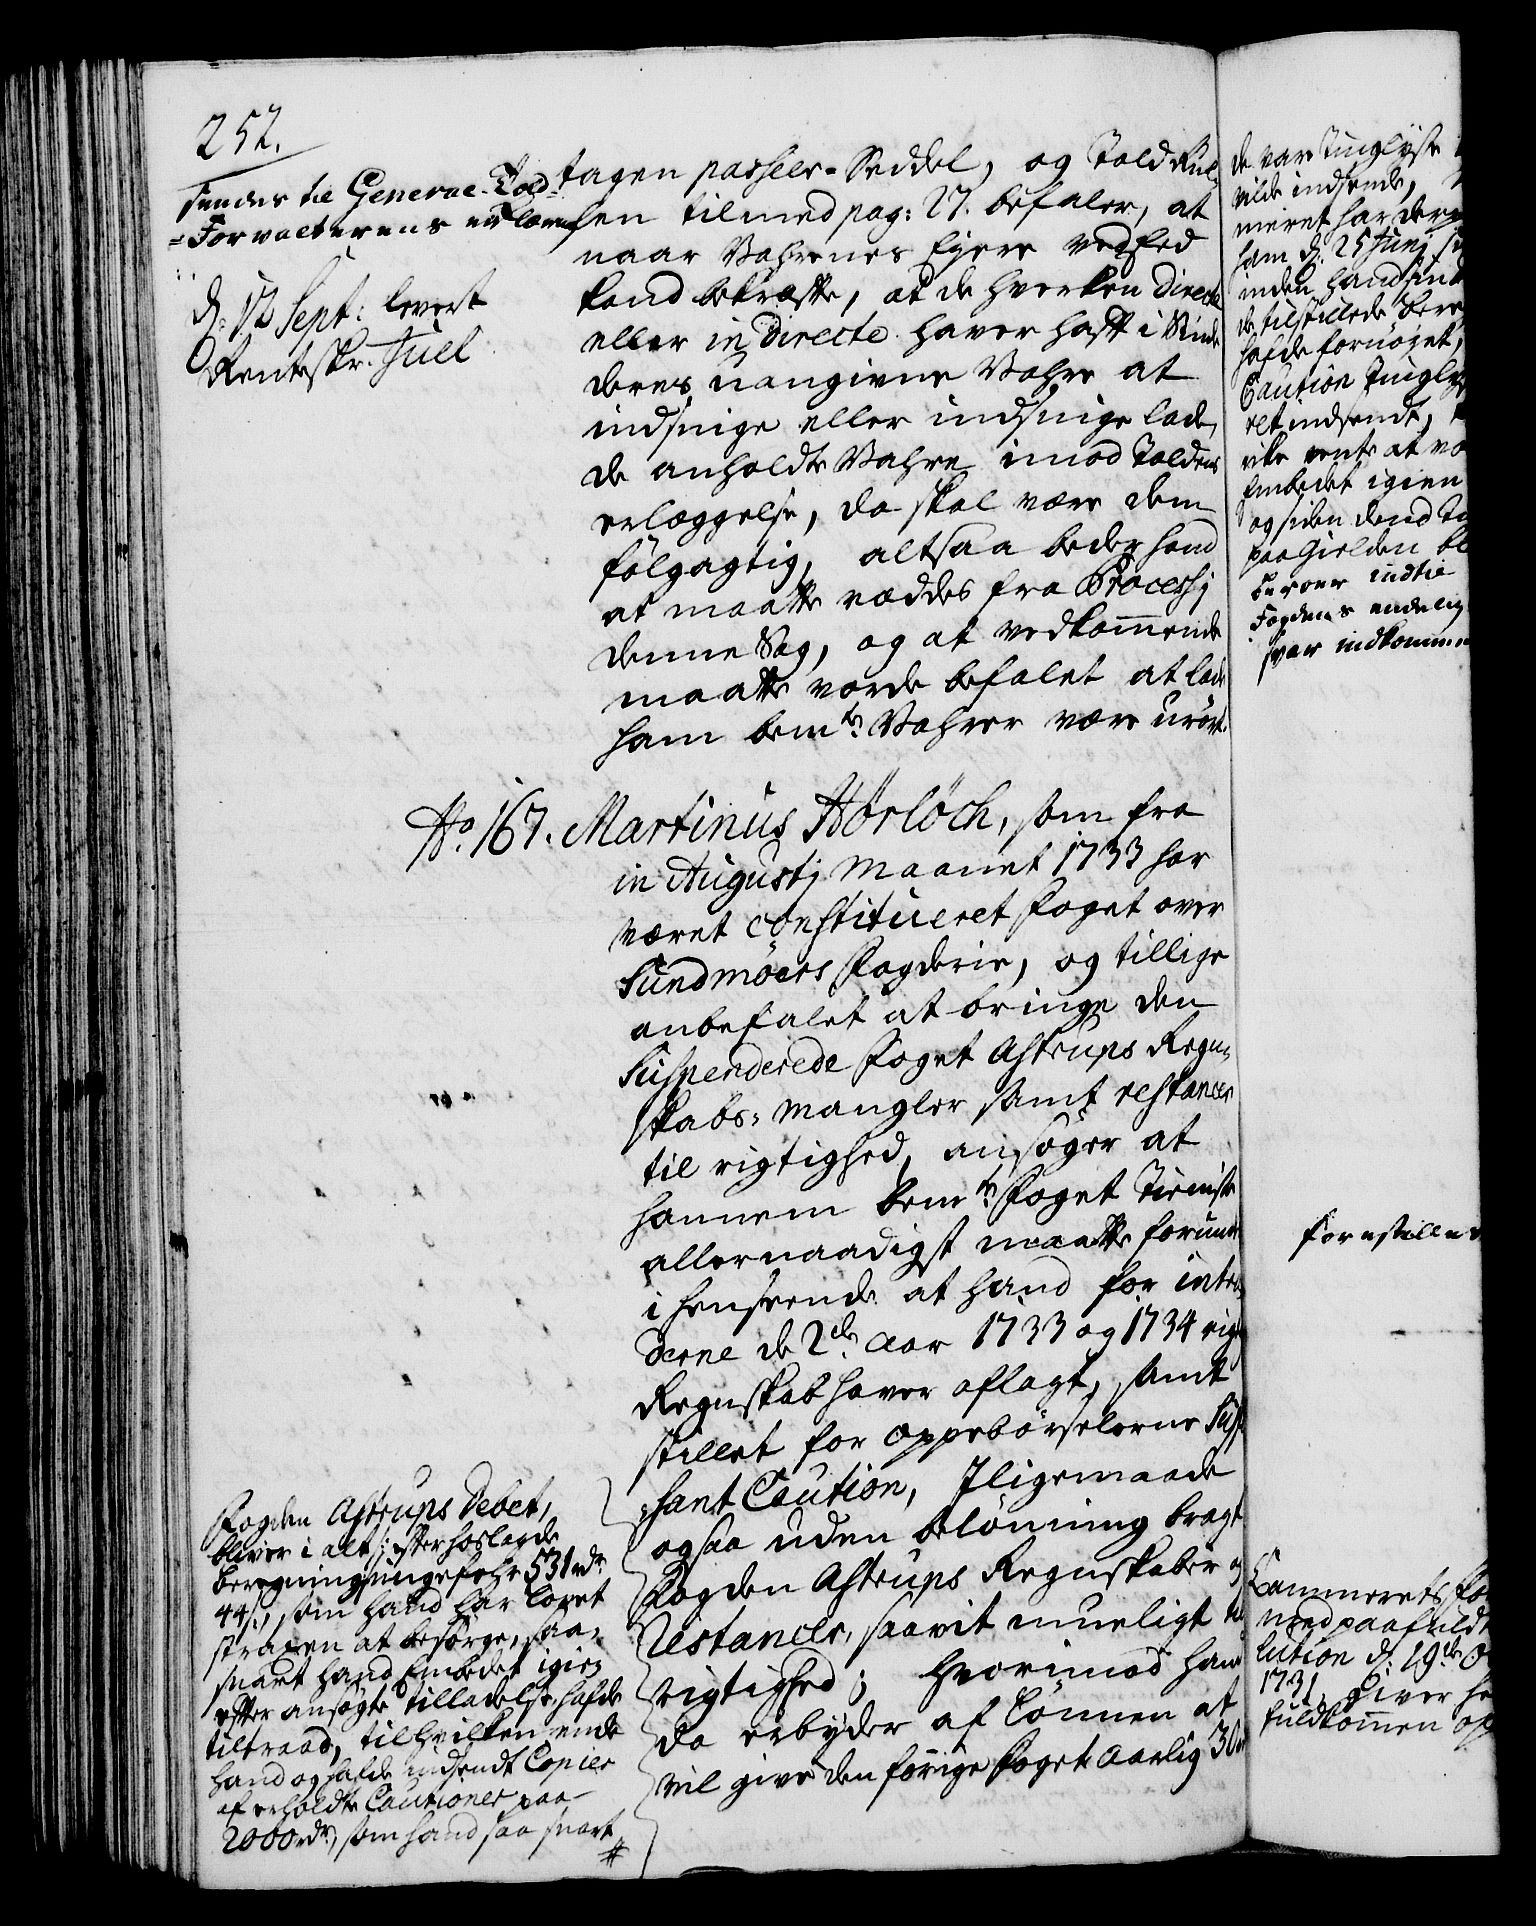 252.
sendes til General-Told-
Forvalterens erklæring
d: 12 Sept: levert
Renteskr. Juel
tagen passeer-Seddel, og Told Rul-
len tilmed pag: 27. befaler, at
naar Vahrenes Ejere ved Eed
kand bekræfte, at de hverken directe
eller indirecte haver haft i Sinde
deres uangivne Vahre at
indsnige eller indsnige lade,
de anholdte Vahre imod Toldens
erlæggelse, da skal være dem
fölgagtig, altsaa beder hand
at maatte reddes fra Process i
denne Sag, og at vedkommende
maatte vorde befalet at lade
ham bemte Vahrer være urört.
No. 167. Martinus Hörlöch, som fra
in Augusti Maanet 1733 har
været constitueret Foget over
Sundmöers Fogderie, og tillige
anbefalet at bringe den
Suspenderede Foget Astrups Regn-
skabs-mangler samt restancer
til rigtighed, ansöger at
hannem bemte Foget Tieniste
allernaadigst maatte forundes
i henseende at hand for intra-
derne de 2de aar 1733 og 1734 rigtig
Regnskab haver aflagt, samt
stillet for oppebörselerne Suffi-
sant Caution, Iligemaade
ogsaa uden belönning bragt
Fogden Astrups Regnskaber og
Restancer, saavit mueligt til
rigtighed; hvorimod hand
da erbyder af Lönnen at
vil give den forige Foget aarlig 30
Fogden Astrups Debet,
bliver i alt efter hoslagde
beregning ungefehr 531 rdr
44 s, som hand har lovet
straxen at besörge, saa-
snart hand Embedet igien
efter ansögte tilladelse hafde
tiltraad, til hvilken ende
hand og hafde indsendt Copier
af erholdte Cautioner paa
2000 rdr, som hand saa snart
#
de var Tinglyste
vilde indsende,
meret har der
ham d: 25 Junj
inden hand
de tilstillede
hafde fornöjet,
Caution Tingly
ret indsendt,
ikke vente at
Embedet igien
og siden dend
paa Gielden
beroer indtil
Fogdens endelig
svar indkommer
forestilles
Cammerets
med paafuldt
lution d: 19de
1731, giver
fuldkommen